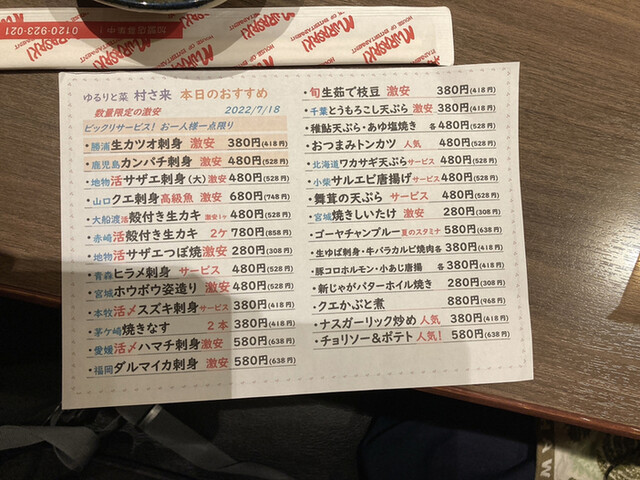 加盟店募集中! 0120-923-021
MURASAKI
HOUSE OF ENTERTAINMENT
ゆるりと菜 村さ来 本日のおすすめ
数量限定の激安 2022/7/18
ビックリサービス! お一人様一点限り
・勝浦生カツオ刺身 激安 380円(418円)
・鹿児島カンパチ刺身 激安 480円(528円)
・地物活サザエ刺身(大)激安 480円(528円)
・山口クエ刺身高級魚 激安 680円(748円)
・大船渡活殻付き生カキ 激安1ヶ 480円(528円)
・赤崎活殻付き生カキ 2ケ 780円(858円)
・地物活サザエつぼ焼激安 280円(308円)
・青森ヒラメ刺身 サービス 480円(528円)
・宮城ホウボウ姿造り 激安 480円(528円)
・本牧活〆スズキ刺身サービス 380円(418円)
・茅ケ崎焼きなす 2本 380円(418円)
・愛媛活〆ハマチ刺身 激安 580円(638円)
・福岡ダルマイカ刺身 激安 580円(638円)
・旬生茹で枝豆 激安 380円(418円)
・千葉とうもろこし天ぷら 激安 380円(418円)
・稚鮎天ぷら・あゆ塩焼き 各480円(528円)
・おつまみトンカツ 人気 480円(528円)
・北海道ワカサギ天ぷらサービス 480円(528円)
・小柴サルエビ唐揚げサービス 480円(528円)
・舞茸の天ぷら サービス 480円(528円)
・宮城焼きしいたけ 激安 280円(308円)
・ゴーヤチャンプルー夏のスタミナ 580円(638円)
・生ゆば刺身・牛バラカルビ焼肉各380円(418円)
・豚コロホルモン・小あじ唐揚 各380円(418円)
・新じゃがバターホイル焼き 280円(308円)
・クエかぶと煮 880円(968円)
・ナスガーリック炒め 人気 380円(418円)
・チョリソー&ポテト 人気! 580円(638円)